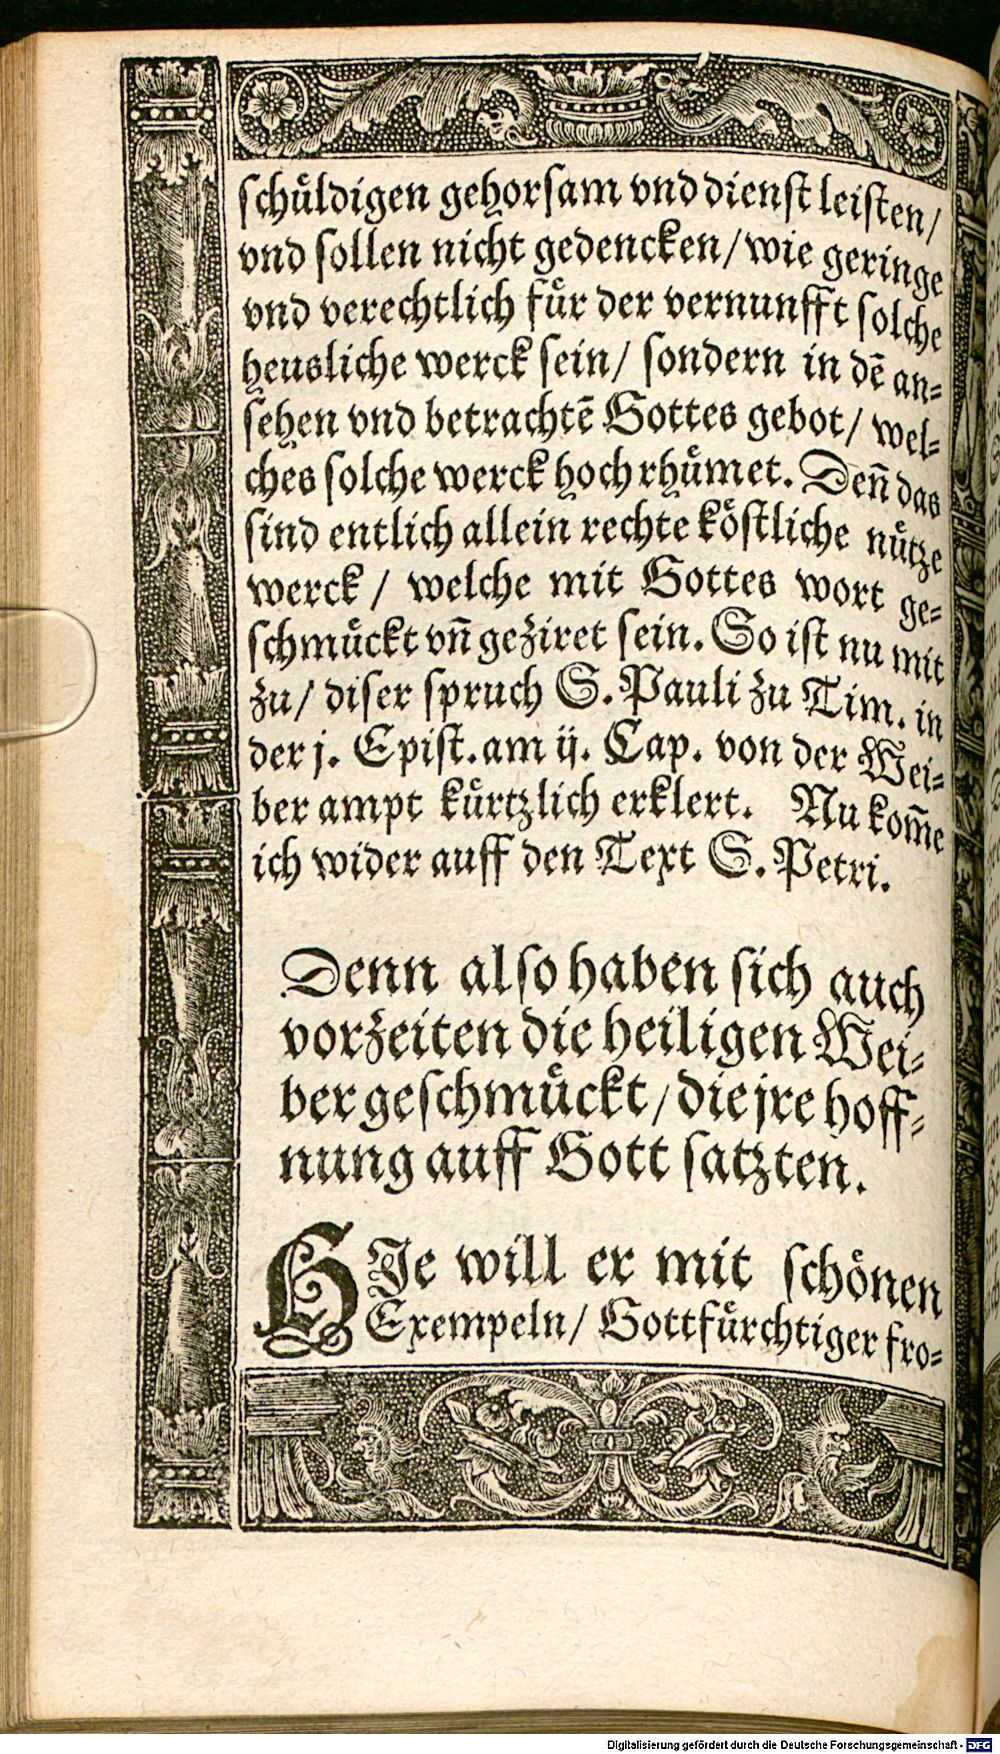 schůldigen gehorsam vnd dienst leisten/
vnd sollen nicht gedencken/ wie geringe
vnd verechtlich fůr der vernunfft solche
heusliche werck sein/ sondern in dē an-
sehen vnd betrachtē Gottes gebot/ wel-
ches solche werck hoch rhůmet. Deñ das
sind entlich allein rechte kͦöstliche nůtze
werck/ welche mit Gottes wort ge-
schmůckt vñ geziret sein. So ist nu mit
zu/ diser spruch S. Pauli zu Tim. in
der j. Epist. am ij. Cap. von der Wei-
ber ampt kůrtzlich erklert. Nu kom̄e
ich wider auff den Text S. Petri.
Denn also haben sich auch
vorzeiten die heiligen Wei-
ber geschmůckt/ die jre hoff-
nung auff Gott satzten.
HIe will er mit schönen
Exempeln/ Gottfůrchtiger fro-
Digitalisierung gefördert durch die Deutsche Forschungsgemeinschaft - DFG